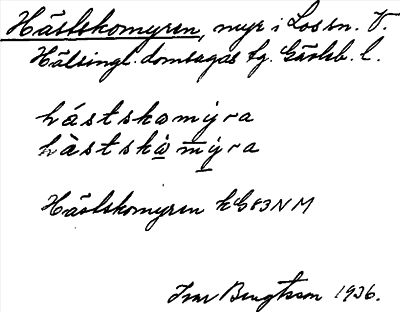 Hästskomyren, myr i Los sn. V.
Hälsingl. domsagas tg. Gävleb. l.
hástskomýra
hàstskò mýra
Hästskomyren hG83NM
Ivar Bengtsson 1936.